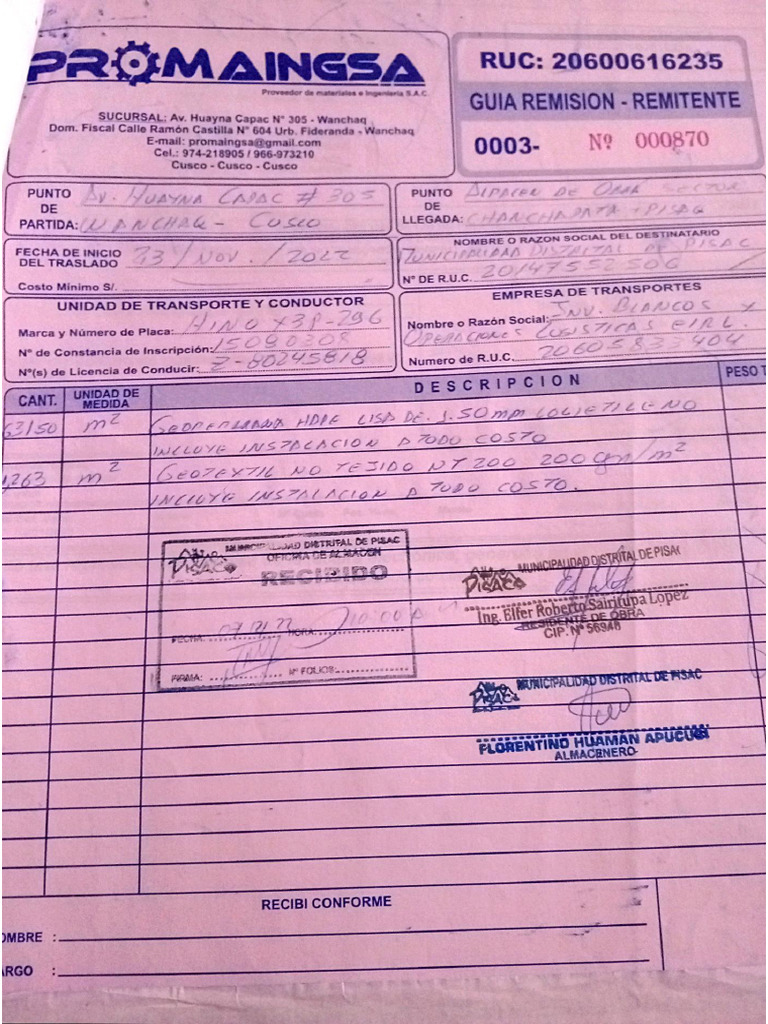 PROMAINGSA
Proveedor de materiales e Ingenieria S.A.C.
SUCURSAL: Av. Huayna Capac N° 305 - Wanchaq
Dom. Fiscal Calle Ramón Castilla N° 604 Urb. Fideranda - Wanchaq
E-mail: promaingsa@gmail.com
Cel.: 974-218905 / 966-973210
Cusco - Cusco - Cusco
RUC: 20600616235
GUIA REMISION - REMITENTE
0003- Nº 000870
PUNTO DE PARTIDA: Av. HUAYNA CAPAC # 305
WANCHAQ - CUSCO
PUNTO DE LLEGADA: ALMACEN DE OBRA SECTOR
CHANCHAPATA - PISAQ
FECHA DE INICIO DEL TRASLADO 23 / NOV. / 2022
Costo Mínimo S/.
NOMBRE O RAZON SOCIAL DEL DESTINATARIO
MUNICIPALIDAD DISTRITAL DE PISAC
N° DE R.U.C. 20147552506
UNIDAD DE TRANSPORTE Y CONDUCTOR
Marca y Número de Placa: HINO X3P-796
N° de Constancia de Inscripción: 15080308
N°(s) de Licencia de Conducir: Z-80245818
EMPRESA DE TRANSPORTES
Nombre o Razón Social: INV. BLANCOS Y
OPERACIONES LOGISTICAS EIRL.
Numero de R.U.C. 20605833404
CANT. UNIDAD DE MEDIDA DESCRIPCION PESO T
63150 m² GEOMEMBRANA HDPE LISA DE 1.50mm
INCLUYE INSTALACION A TODO COSTO
,263 m² GEOTEXTIL NO TEJIDO NT 200 200 gm/m²
INCLUYE INSTALACION A TODO COSTO.
MUNICIPALIDAD DISTRITAL DE PISAC
OFICINA DE ALMACEN
PISAC
RECIBIDO
FECHA: HORA:
FIRMA: N° FOLIOS:
MUNICIPALIDAD DISTRITAL DE PISAC
PISAC
Ing. Elfer Roberto Sairitupa Lopez
RESIDENTE DE OBRA
CIP. N° 56948
MUNICIPALIDAD DISTRITAL DE PISAC
PISAC
FLORENTINO HUAMAN APUCUSI
ALMACENERO
RECIBI CONFORME
OMBRE :
ARGO :